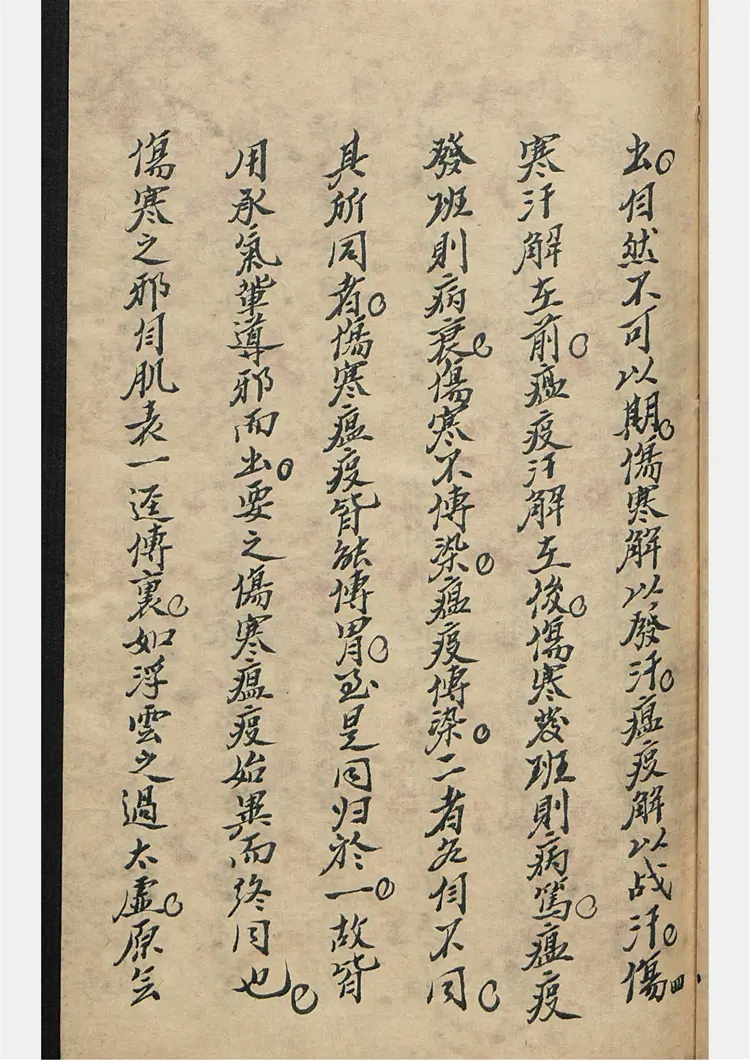 出。自然不可以期。傷寒解以發汗。瘟疫解以战汗。傷
寒汗解在前。瘟疫汗解在後。傷寒发班則病篤。瘟疫
發班則病衰。傷寒不傳染。瘟疫傳染。二者各自不同。
其所同者。傷寒瘟疫皆能傳胃。至是同归於一。故皆
用承氣輩導邪而出。要之傷寒瘟疫始異而終同也。
傷寒之邪自肌表一逕傳裏。如浮雲之過太虛。原无
四